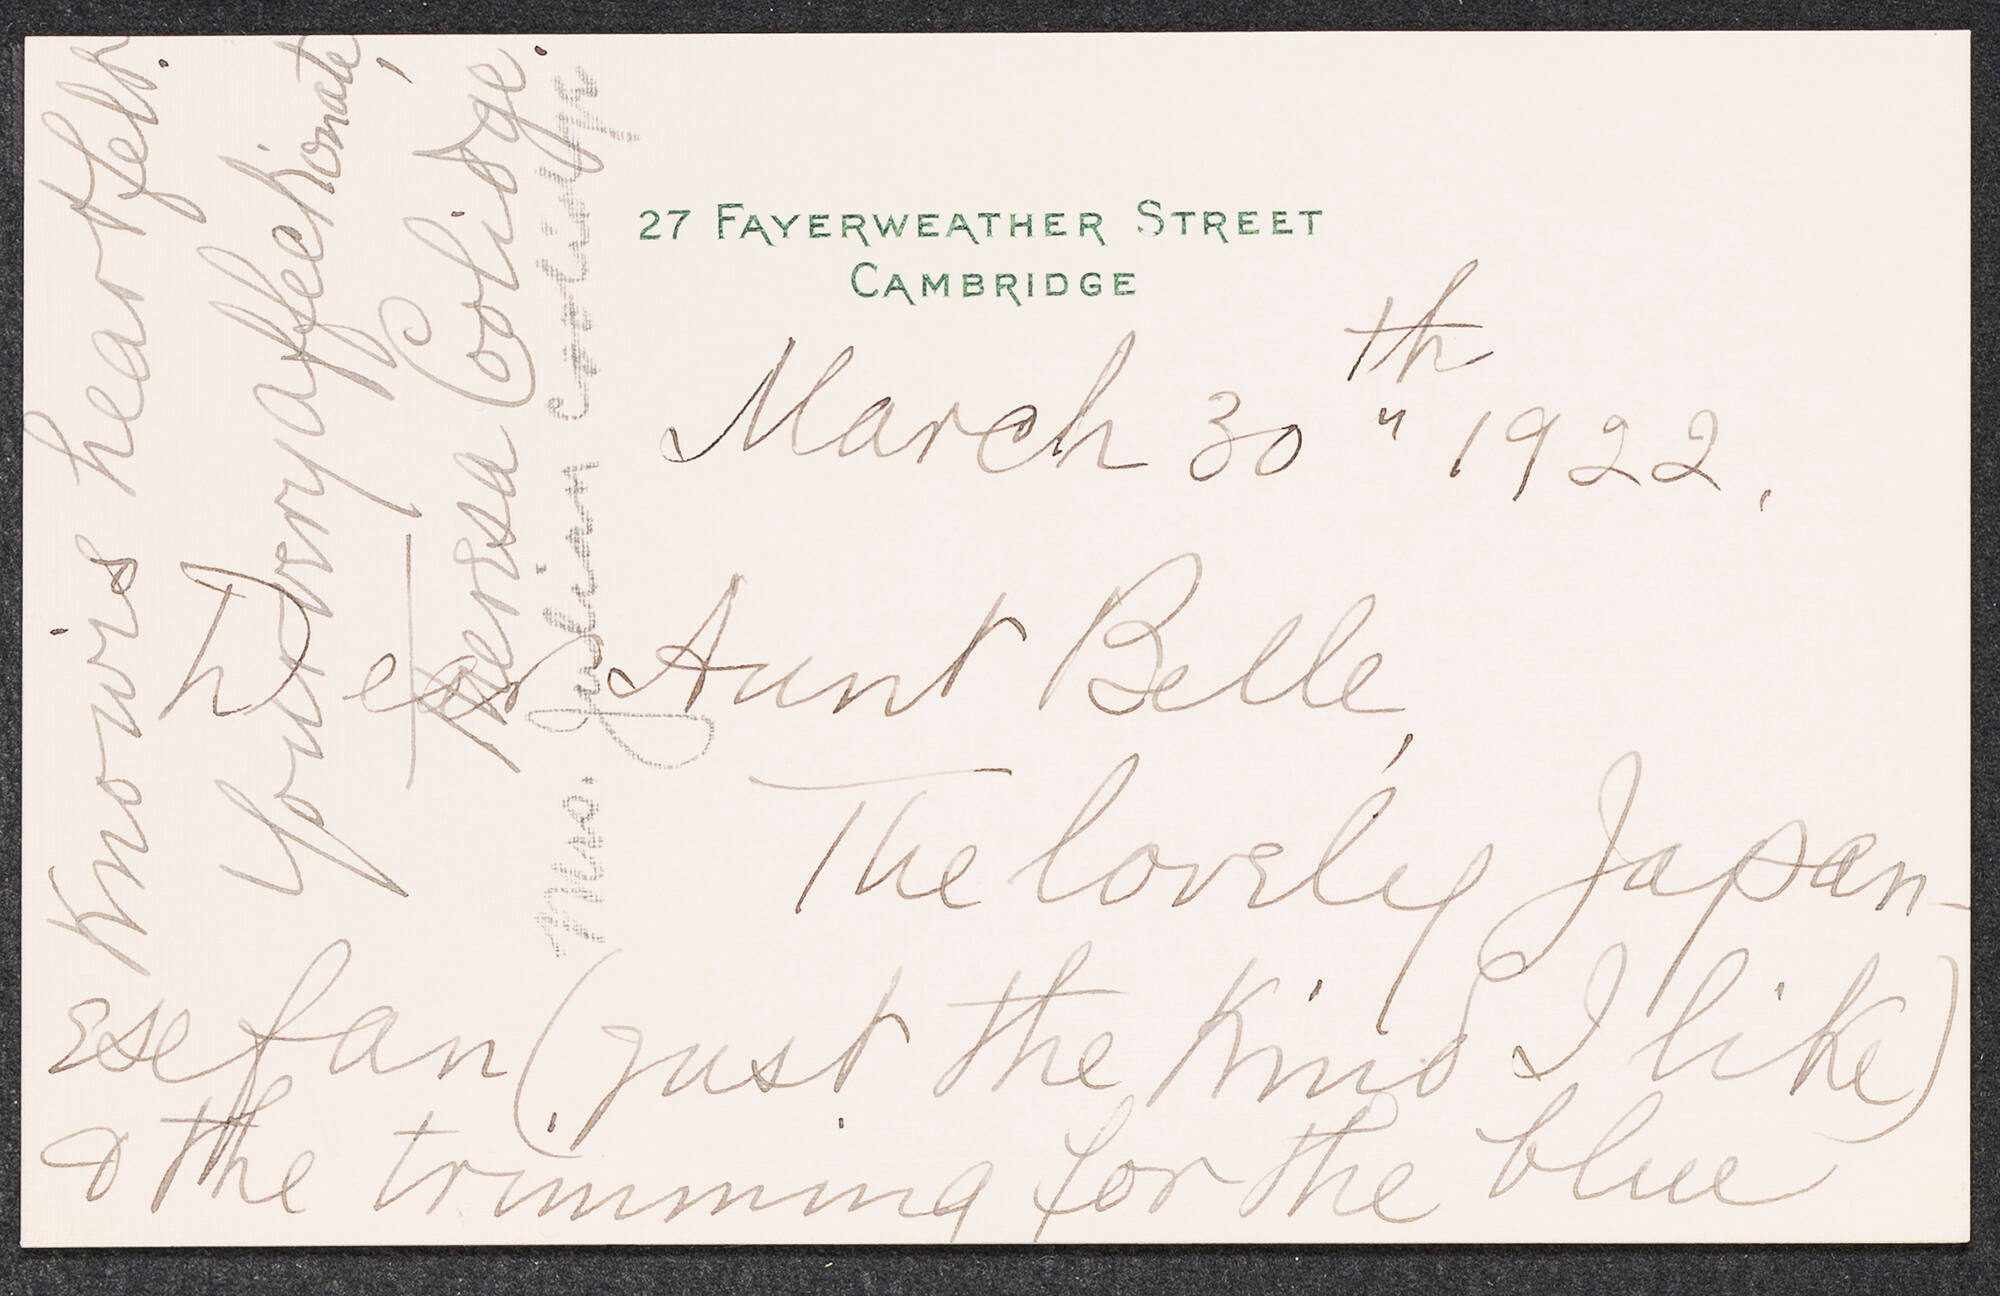 27 FAYERWEATHER STREET
CAMBRIDGE
March 30th 1922.
Dear Aunt Belle,
The lovely Japan-
ese fan (just the kind I like)
& the trimming for the blue
know is heartfelt.
Your very affectionate,
Theresa Coolidge.
Mrs. Julian Coolidge